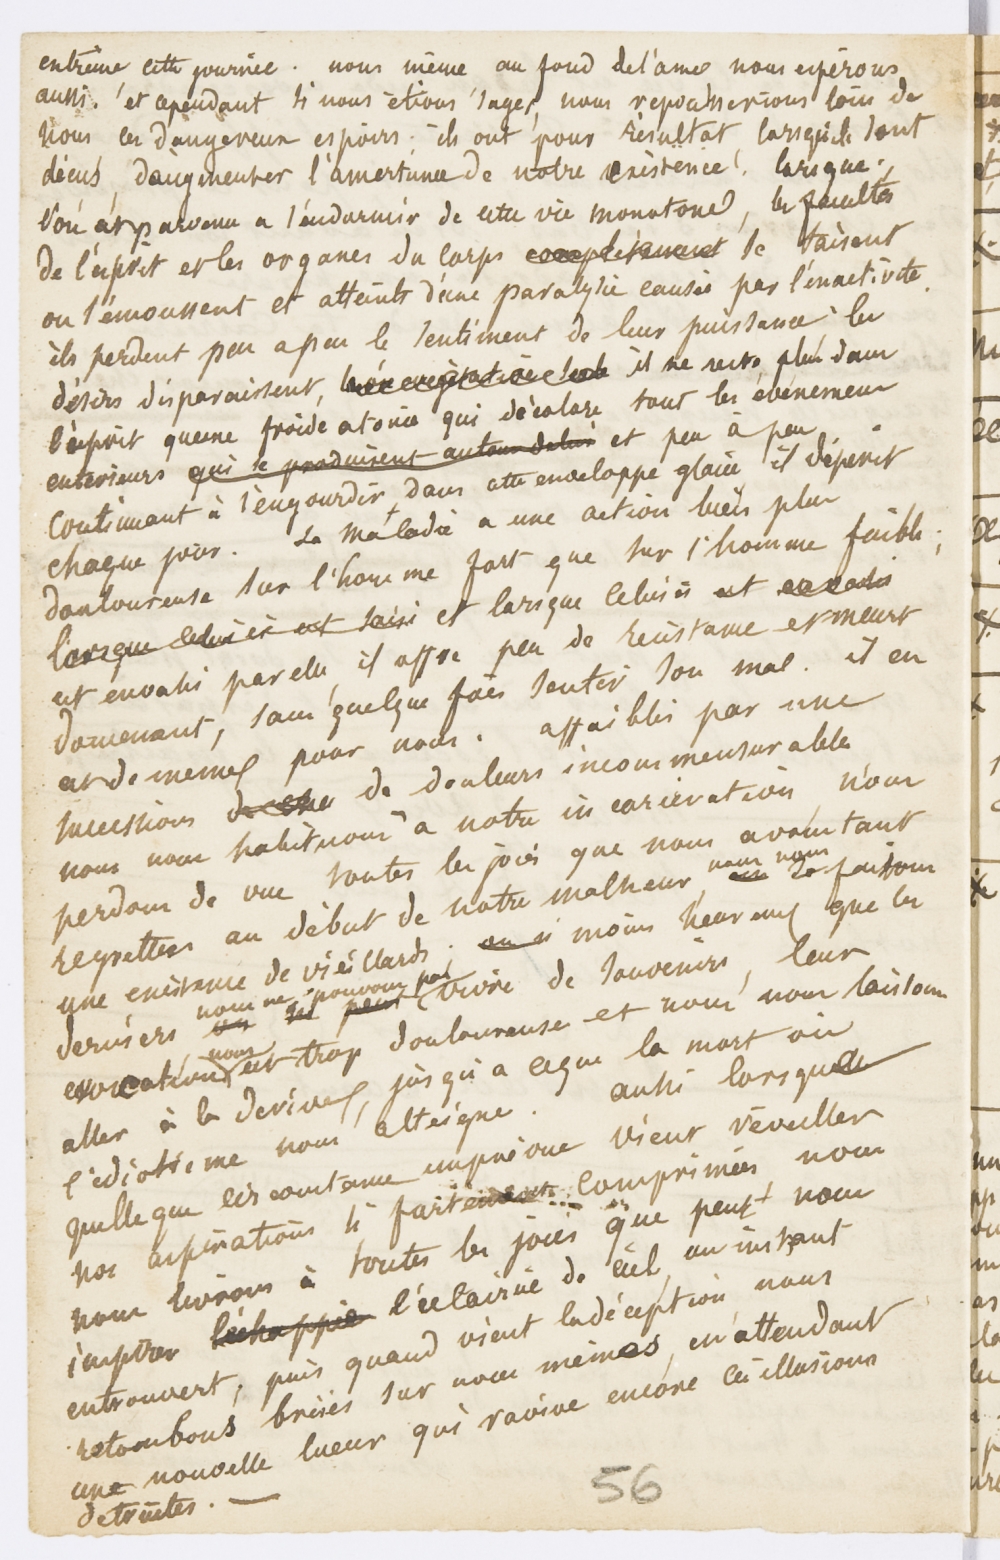 extrême cette journée. nous même au fond de l'âme nous espérons
aussi. et cependant si nous étions sages, nous repousserions loin de
nous ces dangereux espoirs; ils ont pour résultat, lorsqu'ils sont
décus, d'augmenter l'amertume de notre existence. lorsque
l'on est parvenu a s'endormir de cette vie monotone, les facultés
de l'esprit et les organes du corps complètement se taisent
ou s'émoussent et atteints d'une paralysie causée par l'inactivité,
ils perdent peu a peu le sentiment de leur puissance; les
désirs disparaissent, il ne reste plus dans
l'esprit qu'une froide atonie qui décolore tout les évènemens
exterieurs qui se produisent autour de lui et peu à peu
continuant à s'engourdir dans cette enveloppe glacée il dépérit
chaque jour. La maladie a une action bien plus
douloureuse sur l'homme fort que sur l'homme faible;
lorsque celui ci est saisi et lorsque celui ci est
est envahi par elle il offre peu de résistance et meurt
doucement, sans quelque fois sentir son mal. il en
est de meme pour nous. affaiblis par une
succession de douleurs incommensurables
nous nous habituons a notre incarceration, nous
perdons de vue toutes les joies que nous avons tant
regrettées au début de notre malheur, nous nous faisons
une existance de vieillards; moins heureux que les
derniers nous ne pouvons pas vivre de souvenirs, leur
evocation nous est trop douloureuse et nous nous laissons
aller à la derive, jusqu'a ceque la mort ou
l'idiotisme nous atteigne. aussi lorsque
quelque circonstance imprévue vient réveiller
nos aspirations si fortement comprimées nous
nous livrons à toutes les joies que peut nous
inspirer l'échappée l'éclaircie de ciel un instant
entrouvert, puis quand vient la déception nous
retombons brisés sur nous mêmes, en attendant
une nouvelle lueur qui ravive encore ces illusions
detruites. —
56